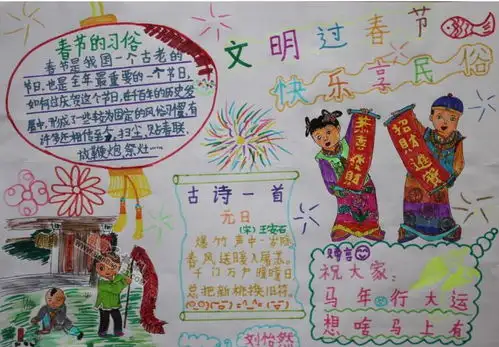 文明过春节
快乐享民俗
春节的习俗
春节是我国一个古老的
节日,也是全年最重要的一个节日,
如何庆贺这个节日,在千百年的历史发
展中,形成了一些较为固定的风俗习惯,有
许多还相传至今,扫尘,贴春联,
放鞭炮,祭灶……
恭喜发财
招财进宝
古诗一首
元日
(宋) 王安石
爆竹声中一岁除
春风送暖入屠苏。
千门万户曈曈日
总把新桃换旧符。
刘怡然
寄言
祝大家:
马年行大运
想啥马上有